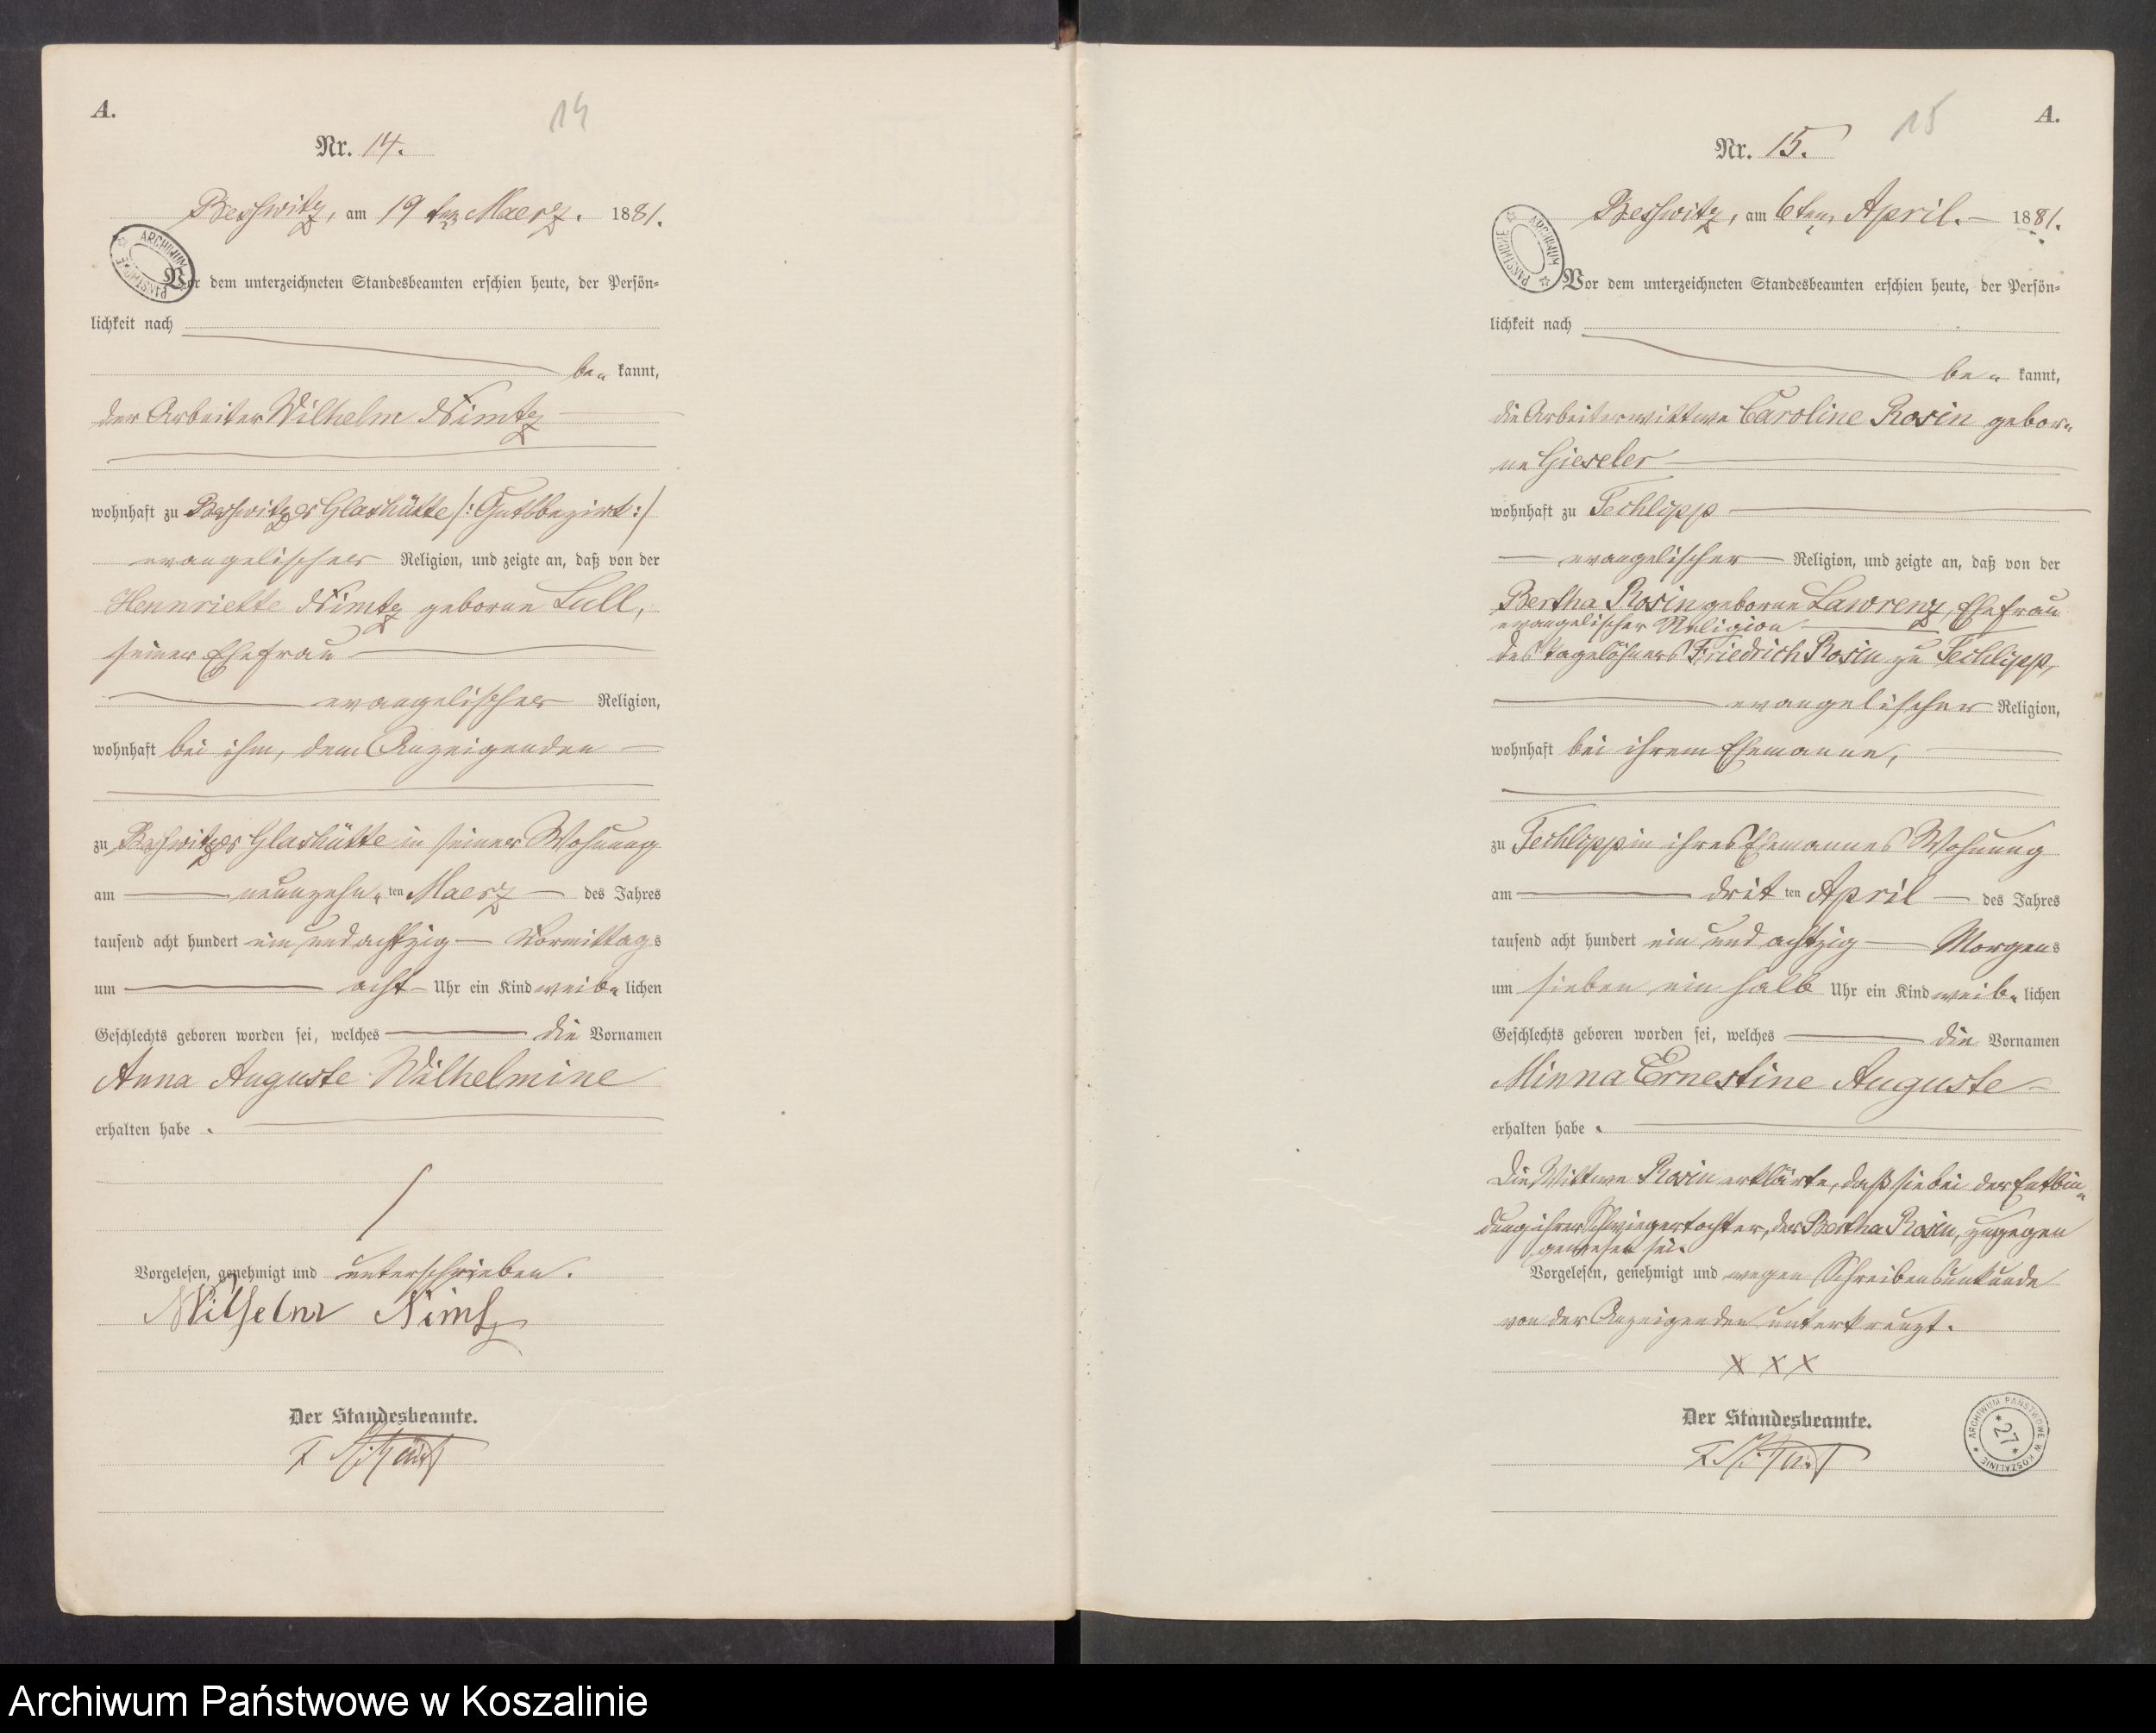 A.
14
Nr. 14.
Beßwitz, am 19ten Maerz. 1881.
ARCHIWUM PAŃSTWOWE
Vor dem unterzeichneten Standesbeamten erschien heute, der Persön-
lichkeit nach
be- kannt,
der Arbeiter Wilhelm Nimtz
wohnhaft zu Beßwitzer Glashütte /: Gutsbezirk :/
evangelischer Religion, und zeigte an, daß von der
Henriette Nimtz geborne Lull,
seiner Ehefrau
evangelischer Religion,
wohnhaft bei ihm, dem Anzeigenden
zu Beßwitzer Glashütte in seiner Wohnung
am neunzehn-ten Maerz des Jahres
tausend acht hundert ein und achtzig Vormittags
um acht Uhr ein Kind weib- lichen
Geschlechts geboren worden sei, welches die Vornamen
Anna Auguste Wilhelmine
erhalten habe .
Vorgelesen, genehmigt und unterschrieben.
Wilhelm Nimtz
Der Standesbeamte.
A.
15
Nr. 15.
Beßwitz, am 6ten April. 1881.
ARCHIWUM PAŃSTWOWE
Vor dem unterzeichneten Standesbeamten erschien heute, der Persön-
lichkeit nach
be- kannt,
die Arbeiterwittwe Caroline Rosin gebor-
ne Gieseler
wohnhaft zu Techlipp
evangelischer Religion, und zeigte an, daß von der
Bertha Rosin geborne Lawrenz, Ehefrau
evangelischer Religion
des Tagelöhners Friedrich Rosin zu Techlipp,
evangelischer Religion,
wohnhaft bei ihrem Ehemanne,
zu Techlipp in ihres Ehemannes Wohnung
am drit ten April des Jahres
tausend acht hundert ein und achtzig Morgens
um sieben ein halb Uhr ein Kind weib- lichen
Geschlechts geboren worden sei, welches die Vornamen
Minna Ernestine Auguste
erhalten habe .
Die Wittwe Rosin erklärte, daß sie bei der Entbin-
dung ihrer Schwiegertochter, der Bertha Rosin, zugegen
gewesen sei.
Vorgelesen, genehmigt und wegen Schreibensunkunde
von der Anzeigenden unterkreuzt.
X X X
Der Standesbeamte.
ARCHIWUM PAŃSTWOWE W KOSZALINIE
* 27 *
Archiwum Państwowe w Koszalinie